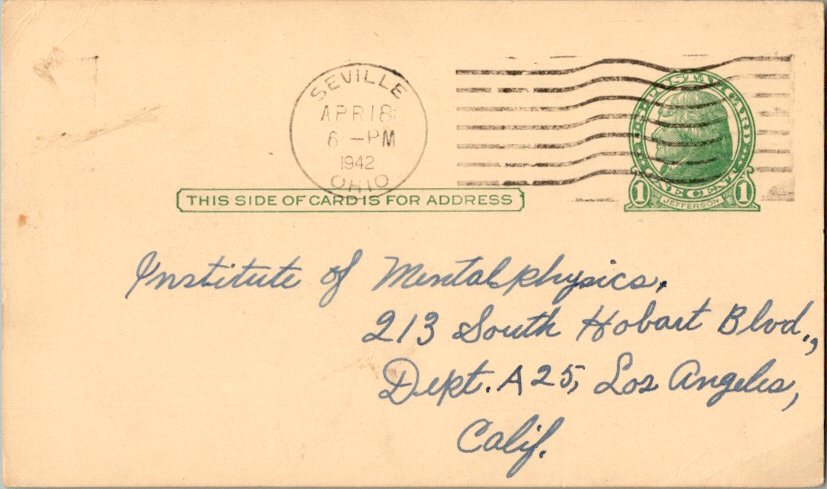 SEVILLE
APR 18
6 - PM
1942
OHIO
U.S. POSTAL CARD
1 ONE CENT 1
JEFFERSON
THIS SIDE OF CARD IS FOR ADDRESS
Institute of Mentalphysics,
213 South Hobart Blvd.,
Dept. A25, Los Angeles,
Calif.